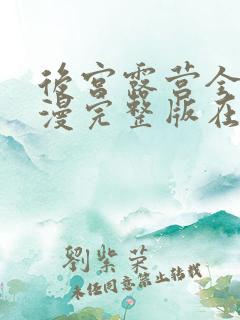 後宫露营全
漫完整版在
劉紫荣
未经同意禁止转载